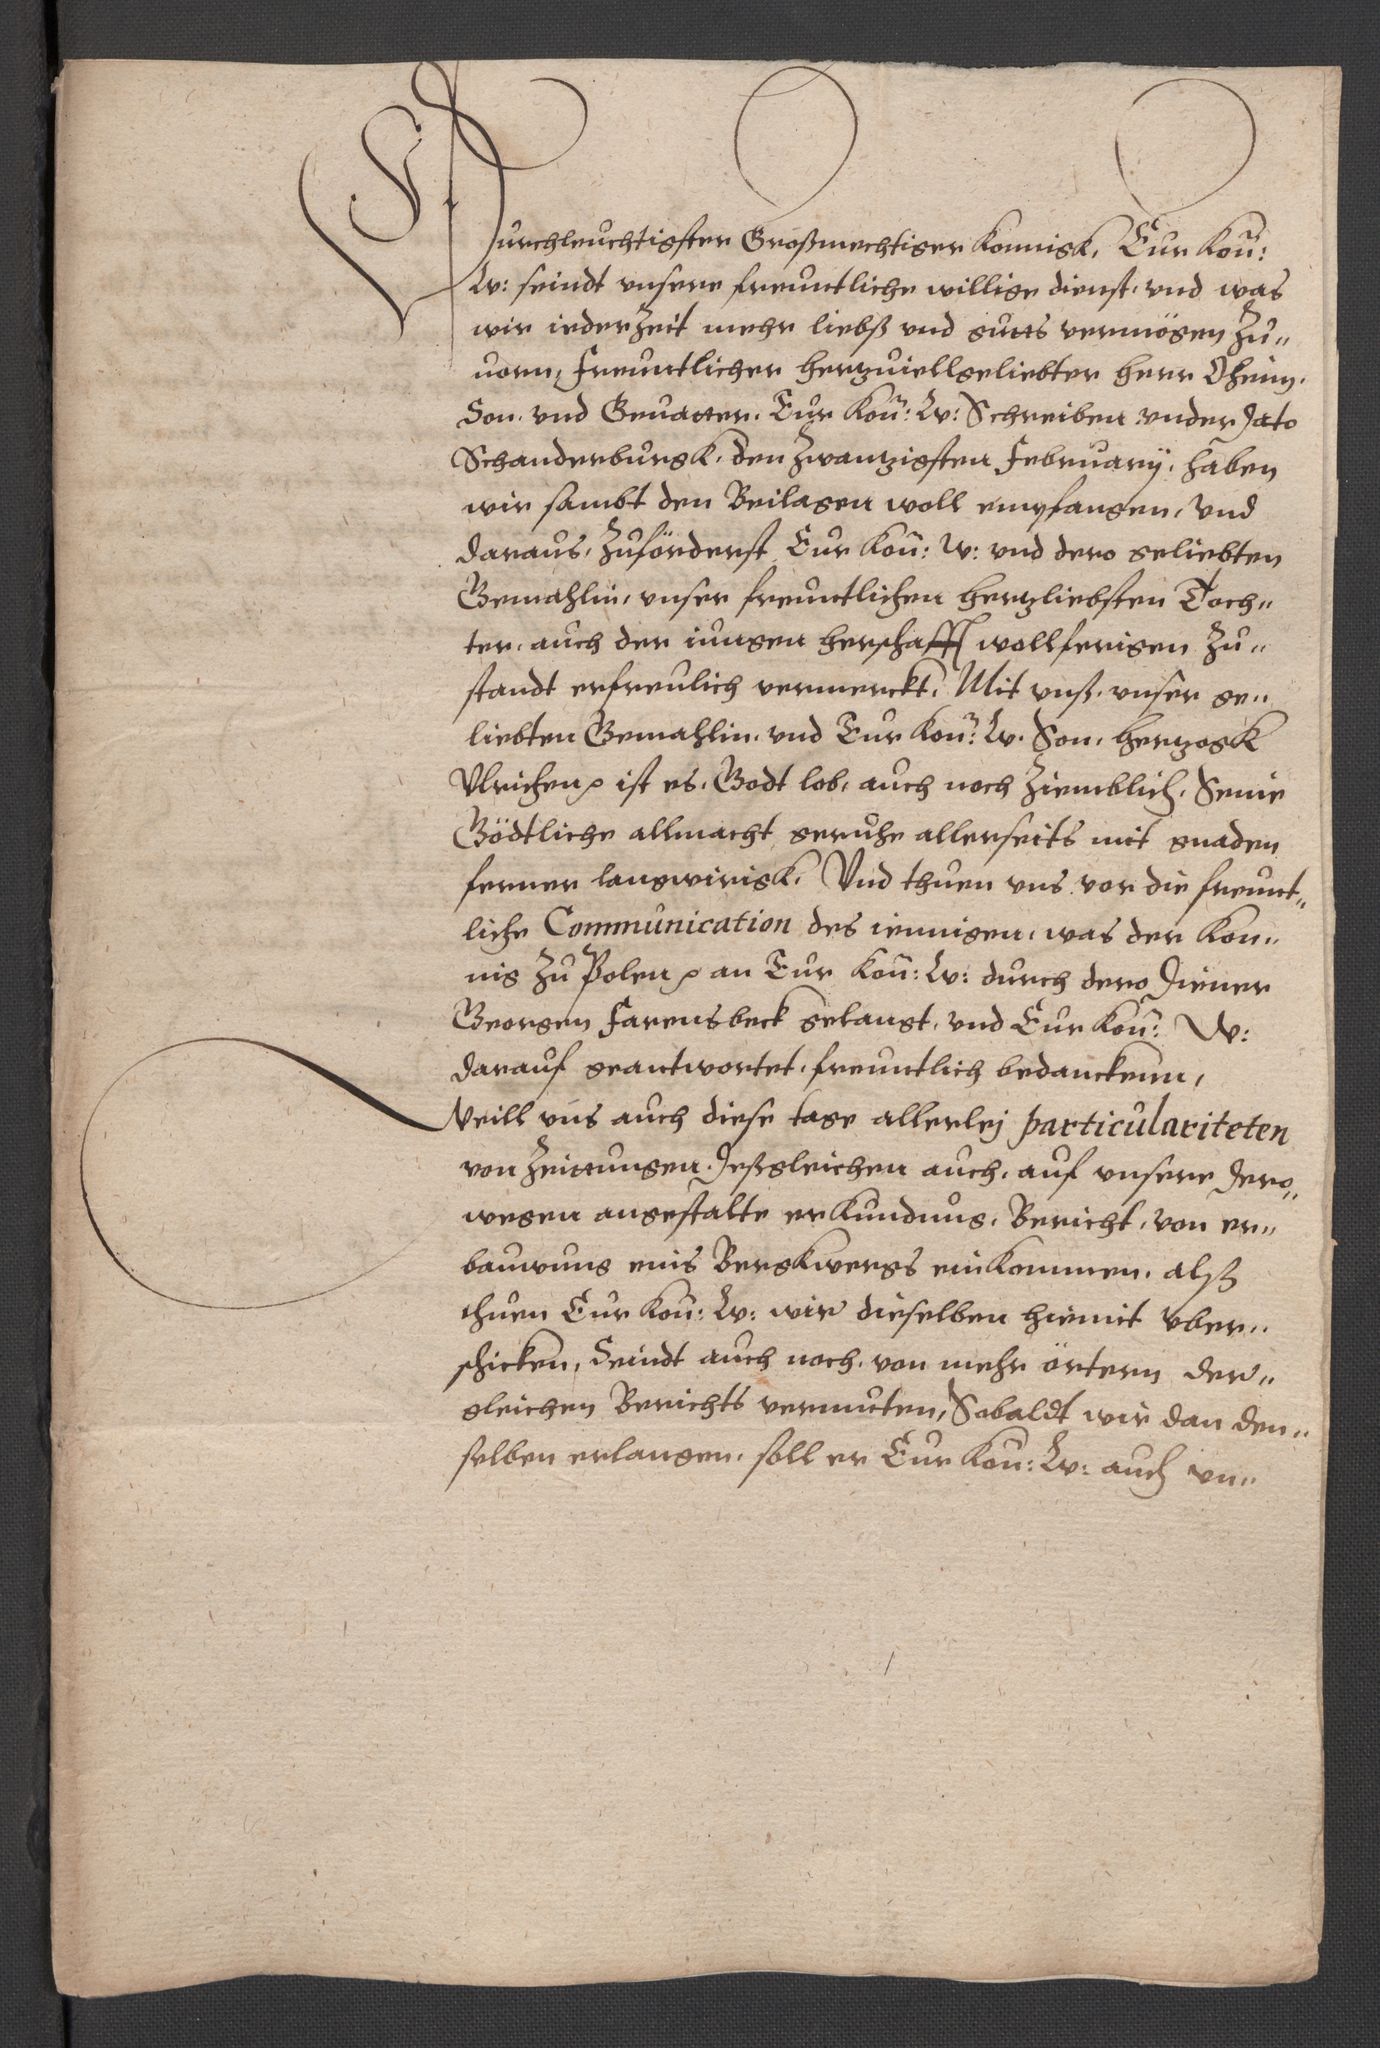 Durchleuchtigster Großmechtiger Konnigk, Eur Kon:
W: seindt vnsere freuntliche willige dienst, vnd was
wir iederZeit mehr liebß vnd gutts vermögen Zu„
uorn, Freuntlicher hertzuiellgeliebter herr Oheim,
Son, vnd Geuatter, Eur Kon: W: Schreiben vnder Dato
Schanderburgk, den Zwantzigsten February, haben
wir sambt den Beilagen woll empfangen, Vnd
daraus, Zuförderst Eur Kon: W: vnd dero geliebten
Gemahlin, vnser freuntlichen hertzliebsten Toch„
ter, auch der iungen herschafft wollferigen Zu„
standt erfreulich vermerckt, Mit vnß, vnser ge„
liebten Gemahlin, vnd Eur Kon: W. Son, hertzogk
Vlrichen ist es, Godt lob, auch noch Ziemblich, Seine
Gödtliche allmacht geruhe allerseits mit gnaden
ferner langwirigk, Vnd thuen vns vor die freunt„
liche Communication des iennigen, was der Kon„
nig Zu Polen an Eur Kon: W: durch dero Diener
Georgen Farensbeck gelangt, vnd Eur Kon: W:
darauf geantwortet, freuntlich bedanckenn,
Weill vns auch diese tage allerlej particulariteten
von Zeittungen, Deßgleichen auch, auf vnsere Dero„
wegen angestalte erkundnus, Bericht, von er„
bauwung eins Bergkwergs einkommen, alß
thuen Eur Kon: W: wir dieselben hiemit vber„
schicken, Seindt auch noch, von mehr örtern der„
gleichen Berichts vermuten, Sobaldt wir dan den„
selben erlangen, soll er Eur Kon: W: auch vn„